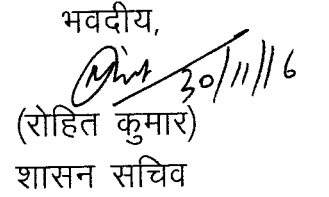 भवदीय,
30/11/16
(रोहित कुमार)
शासन सचिव